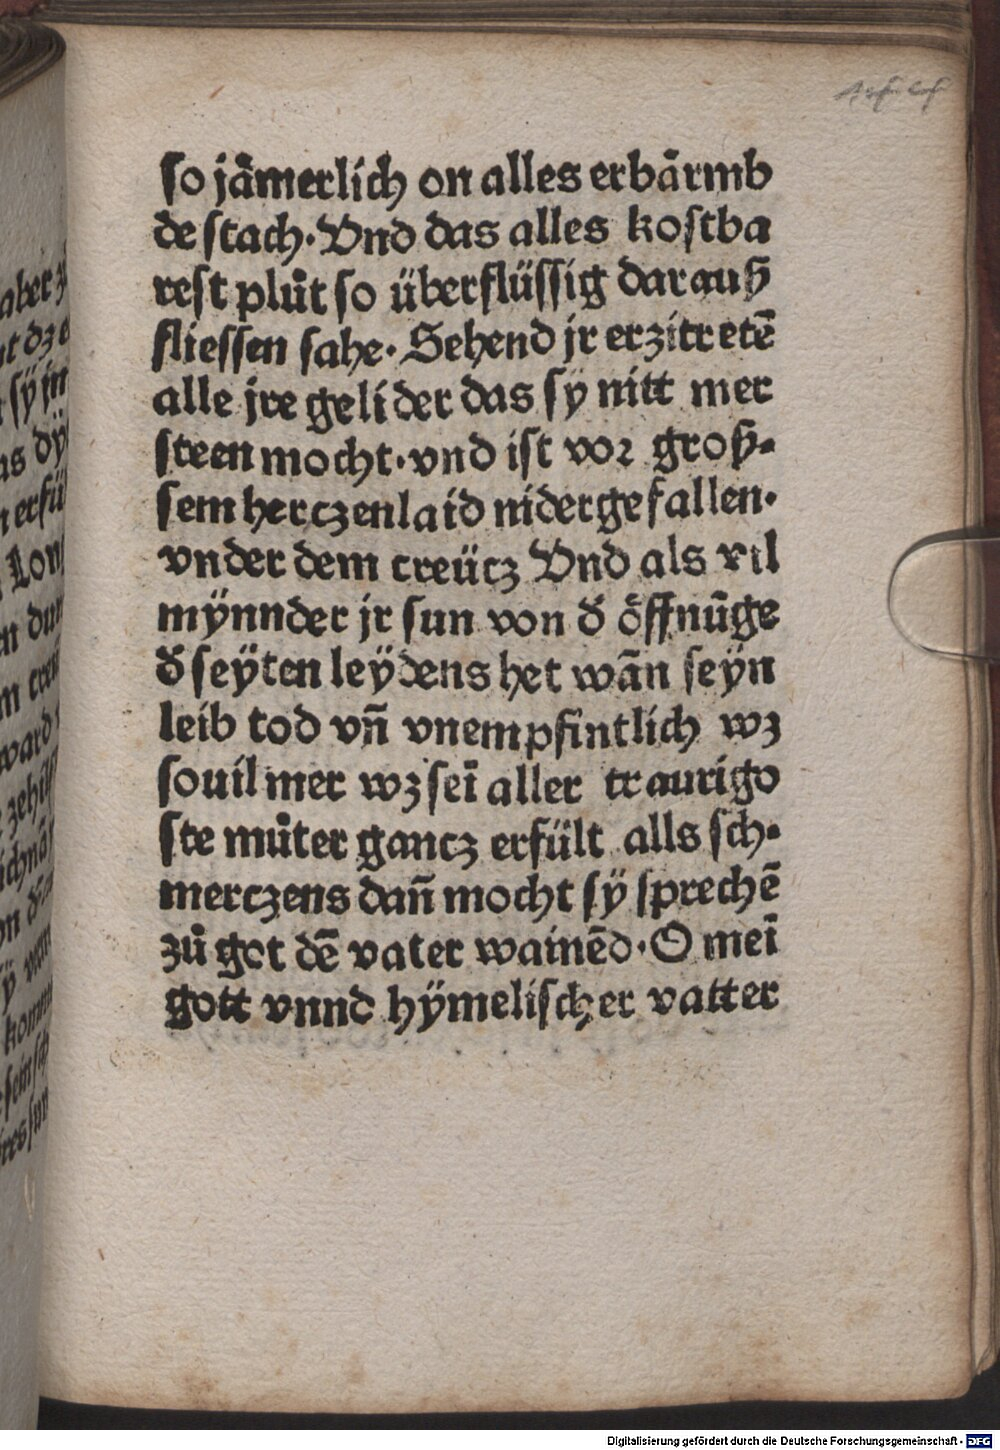 so jämerlich on alles erbärmb
de stach. Vnd das alles kostba
rest plůt so überflüssig darauß
fliessen sahe. Sehend jr erzitretē
alle jre gelider das sÿ nitt mer
steen mocht. vnd ist vor groß-
sem herczenlaid nidergefallen.
vnder dem creücz Vnd als vil
mÿnnder jr sun von d̓ öffnūge
d̓ seÿten leÿdens het wān seÿn
leib tod vn̄ vnempfintlich wz
souil mer wz sei̅ aller traurigo
ste můter gancz erfült alls sch-
merczens dan̄ mocht sÿ sprechē
zů got dē vater wainēd. O mei̅
gott vnnd hÿmelischer vatter
Digitalisierung gefördert durch die Deutsche Forschungsgemeinschaft - DFG